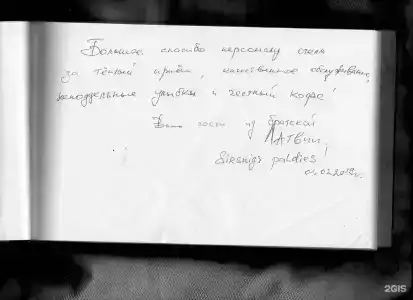 Большое спасибо персоналу отеля
за тёплый приём, качественное обслуживание,
неподдельные улыбки и честный кофе!
гости из братской
ЛАТВИИ!
Sirsnīgs paldies!
01.02.2019г.
2GIS